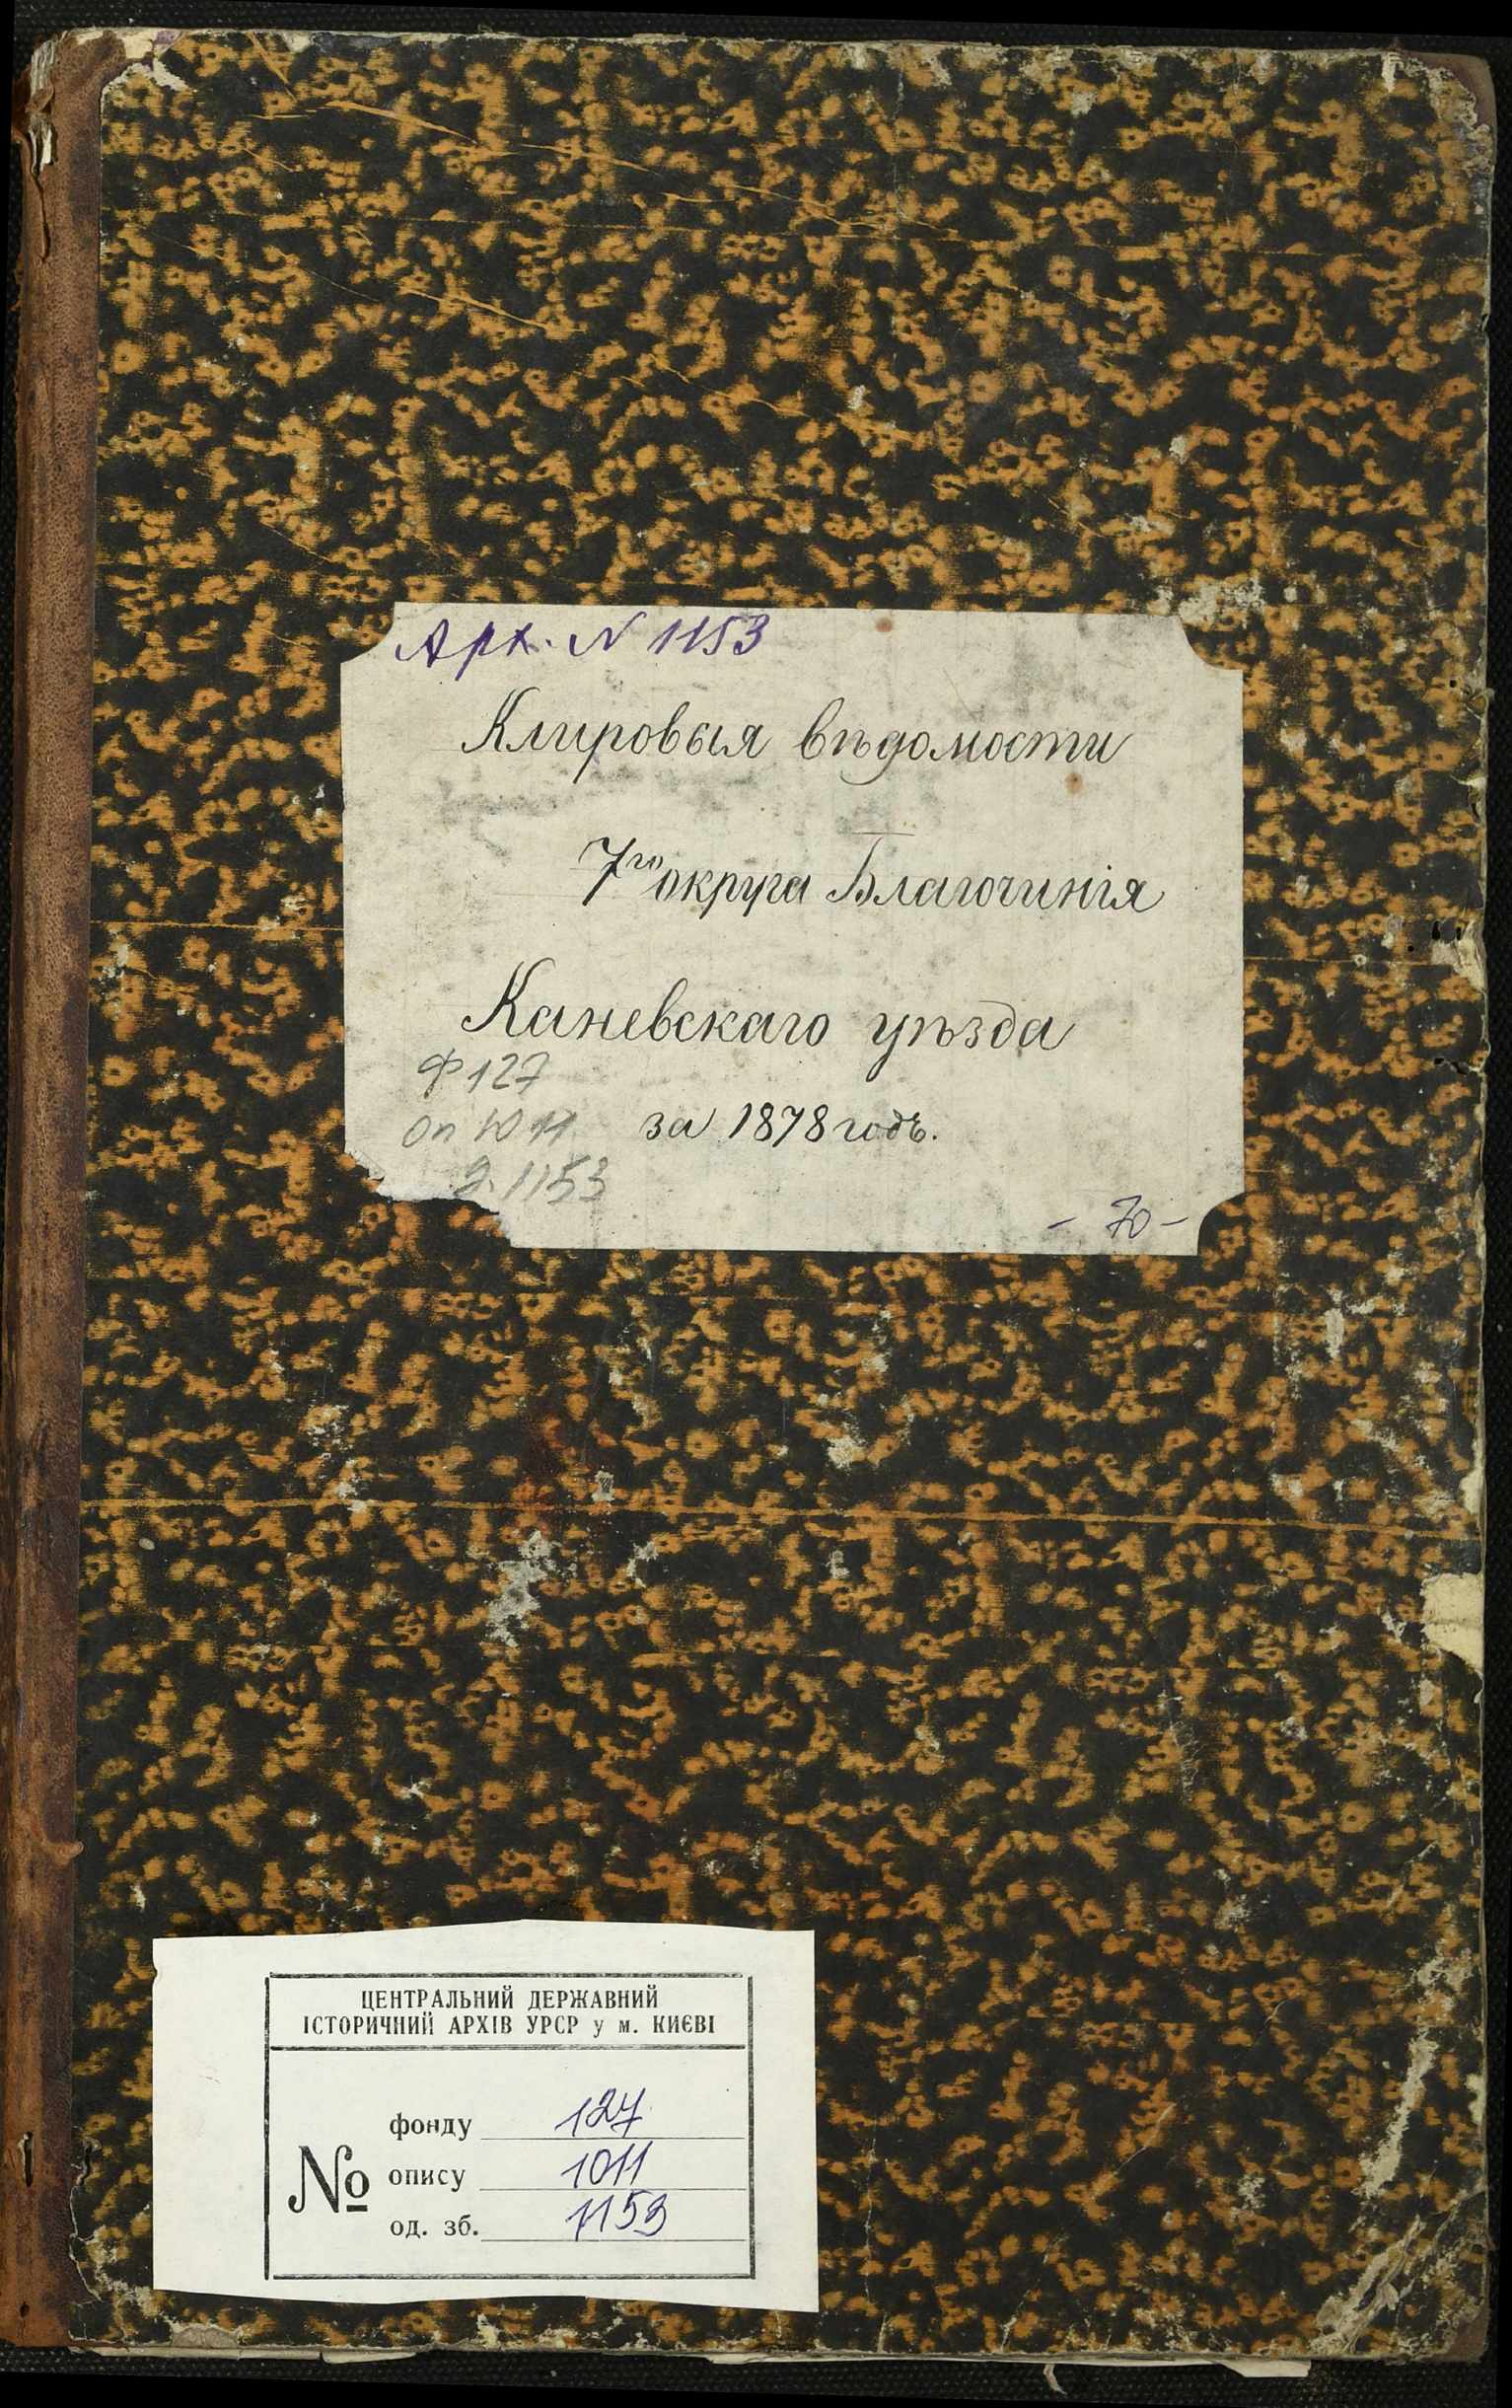 Арх. N 1153
Клировыя вѣдомости
7го округа Благочинія
Каневскаго уѣзда
Ф 127
оп 1011 за 1878 годъ.
д. 1153
- 70 -
ЦЕНТРАЛЬНИЙ ДЕРЖАВНИЙ
ІСТОРИЧНИЙ АРХІВ УРСР у м. КИЄВІ
№
фонду 127
опису 1011
од. зб. 1153